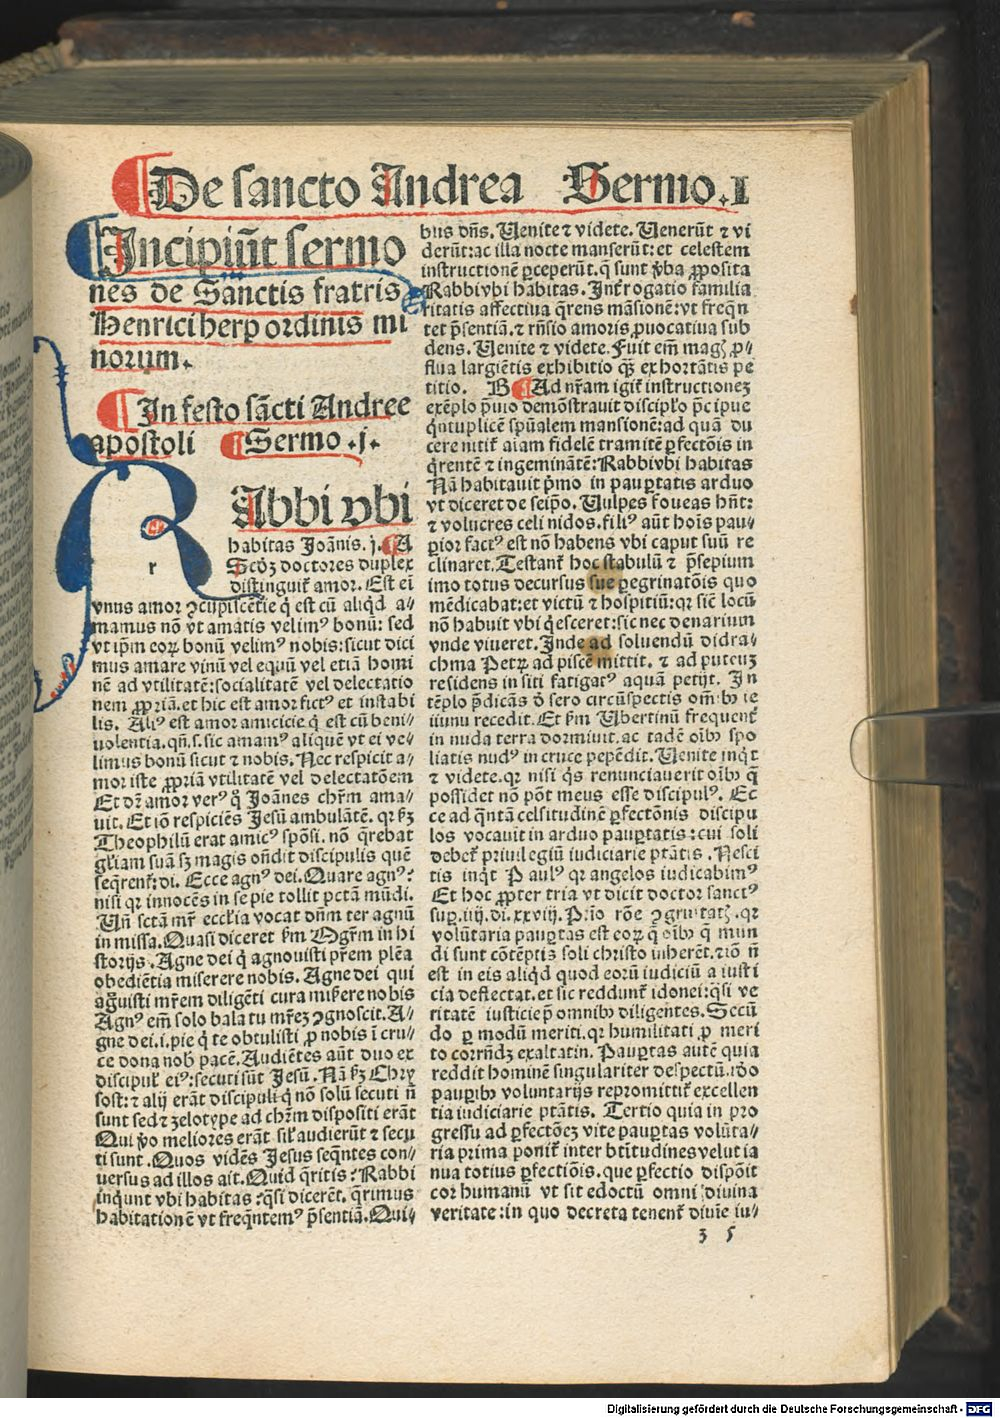 De sancto Andrea Sermo.I
Incipiũt sermo
nes de Sanctis fratris
Henrici herp ordinis mi
norum.
In festo sãcti Andree
apostoli Sermo .j.
RAbbi vbi
habitas Joãnis. j. A
Scďʒ doctores duplex
distinguiť amor. Est eĩ
r
vnus amor ꝯcupiscẽtie q̇ est cũ aliqd̃ a⸗
mamus nõ vt amatis velimꝰ bonũ: sed
vt ip̃m eoꝝ bonũ velimꝰ nobis: sicut dici
mus amare vinũ vel equũ vel etiã homi
nẽ ad vtilitatẽ: socialitatẽ vel delectatio
nem ꝓpriã. et hic est amor fictꝰ et instabi
lis. Aliꝰ est amor amicicie q̇ est cũ beni⸗
uolentia. qñ. s. sic amamꝰ aliquẽ vt ei ve⸗
limus bonũ sicut ⁊ nobis. Nec respicit a⸗
mor iste ꝓpriã vtilitatẽ vel delectatõem
Et dẽ amor verꝰ q̊ Joãnes chr̃m ama⸗
uit. Et iõ respiciẽs Jesũ ambulãtẽ. qꝛ ẜʒ
Theophilũ erat amicꝰ spõsi. nõ q̃rebat
gľiam suã sʒ magis oñdit discipulis quẽ
seq̃renť: di. Ecce agnꝰ dei. Quare agnꝰ:
nisi qꝛ innocẽs in se pie tollit pctã mũdi.
Uñ sctã mř eccľia vocat dñm ter agnũ
in missa. Quasi diceret ẜm Ogr̃m in hi
storijs. Agne dei q̇ agnouisti pr̃em plẽa
obediẽtia miserere nobis. Agne dei qui
agũisti mr̃em diligẽti cura miẜere nobis
Agnꝰ em̃ solo balatu mr̃eʒ ꝯgnoscit. A⸗
gne dei. i. pie q̇ te obtulisti ꝓ nobis ĩ cru⸗
ce dona nob̃ pacẽ. Audiẽtes aũt duo ex
discipuľ eiꝰ: secuti sũt Jesũ. Nã ẜʒ Chrẏ
sost: ⁊ alij erãt discipuli q̇ nõ solũ secuti ñ
sunt sed ⁊ zelotype ad chr̃m dispositi erãt
Qui ṽo meliores erãt siľ audierũt ⁊ secu
ti sunt. Quos vidẽs Jesus seq̃ntes con⸗
uersus ad illos ait. Quid q̃ritis: Rabbi
inquunt vbi habitas: q̃si dicerẽt. q̃rimus
habitationẽ vt freq̃ntemꝰ p̃sentiã. Qui⸗
bus dñs. Uenite ⁊ videte. Uenerũt ⁊ vi
derũt: ac illa nocte manserũt: et celestem
instructionẽ ꝑceperũt. q̃ sunt ṽba ꝓposita
Rabbi vbi habitas. Inťrogatio familia
ritatis affectiua q̃rens mãsionẽ: vt freq̃n
tet p̃sentiã. ⁊ rñsio amoris ꝓuocatiua sub
dens. Uenite ⁊ videte. Fuit em̃ magꝫ ꝓ⸗
flua largiẽtis exhibitio q̃ʒ exhortãtis pe
titio. B Ad nr̃am igiť instructioneʒ
exẽplo p̃uio demõstrauit discipľo p̃cipue
q̇ntuplicẽ sp̃ualem mansionẽ: ad quã du
cere nitiť aĩam fidelẽ tramitẽ ꝑfectõis in
q̇rentẽ ⁊ ingeminãtẽ: Rabbi vbi habitas
Nã habitauit p̃mo in pauꝑtatis arduo
vt diceret de seip̃o. Uulpes foueas hñt:
⁊ volucres celi nidos. filiꝰ aũt hoĩs pau⸗
ꝑior factꝰ est nõ habens vbi caput suũ re
clinaret. Testanť hoc stabulũ ⁊ p̃sepium
imo totus decursus sue ꝑegrinatõis quo
mẽdicabat: et victũ ⁊ hospitiũ: qꝛ sic̃ locũ
nõ habuit vbi q̇esceret: sic nec denarium
vnde viueret. Inde ad soluendũ didra⸗
chma Petꝝ ad piscẽ mittit. ⁊ ad puteuʒ
residens in siti fatigatꝰ aquã petijt. In
tẽplo p̃dicãs ð sero circũspectis om̃ibꝰ ie
iunu recedit. Et ẜm Ubertinũ frequenť
in nuda terra dormiuit. ac tadẽ oĩbꝰ spo
liatis nudꝰ in cruce pepẽdit. Uenite inq̇t
⁊ videte. qꝛ nisi q̇s renunciauerit oĩbꝰ q̃
possidet nõ põt meus esse discipulꝰ. Ec
ce ad q̃ntã celsitudinẽ ꝑfectõnis discipu
los vocauit in arduo pauꝑtatis: cui soli
debeť priuilegiũ iudiciarie ptãtis. Nesci
tis inq̇t Paulꝰ qꝛ angelos iudicabimꝰ
Et hoc ꝓpter tria vt dicit doctor sanctꝰ
suꝑ. iiij. di. xxviij. P.io rõe ꝯgruitatꝫ. qꝛ
volũtaria pauꝑtas est eoꝝ q̇ oĩbꝰ q̃ mun
di sunt cõtẽptis soli christo inherẽt. ⁊ iõ ñ
est in eis aliqd̃ quod eorũ iudiciũ a iusti
cia deflectat. et sic redduntʳ idonei: q̃si ve
ritatẽ iusticie p̃ omnibꝰ diligentes. Secũ
do ꝑ modũ meriti. qꝛ humilitati ꝓ meri
to corrñdʒ exaltatin. Pauꝑtas autẽ quia
reddit hominẽ singulariter despectũ. iõo
pauꝑibꝰ voluntarijs repromittiť excellen
tia iudiciarie ptãtis. Tertio quia in pro
gressu ad ꝑfectõeʒ vite pauꝑtas volũta⸗
ria prima poniť inter btĩtudines velut ia
nua totius ꝑfectiõis. que ꝑfectio dispõit
cor humanũ vt sit edoctũ omni diuina
veritate: in quo decreta tenenť diuĩe iu⸗
3 5
Digitalisierung gefördert durch die Deutsche Forschungsgemeinschaft - DFG